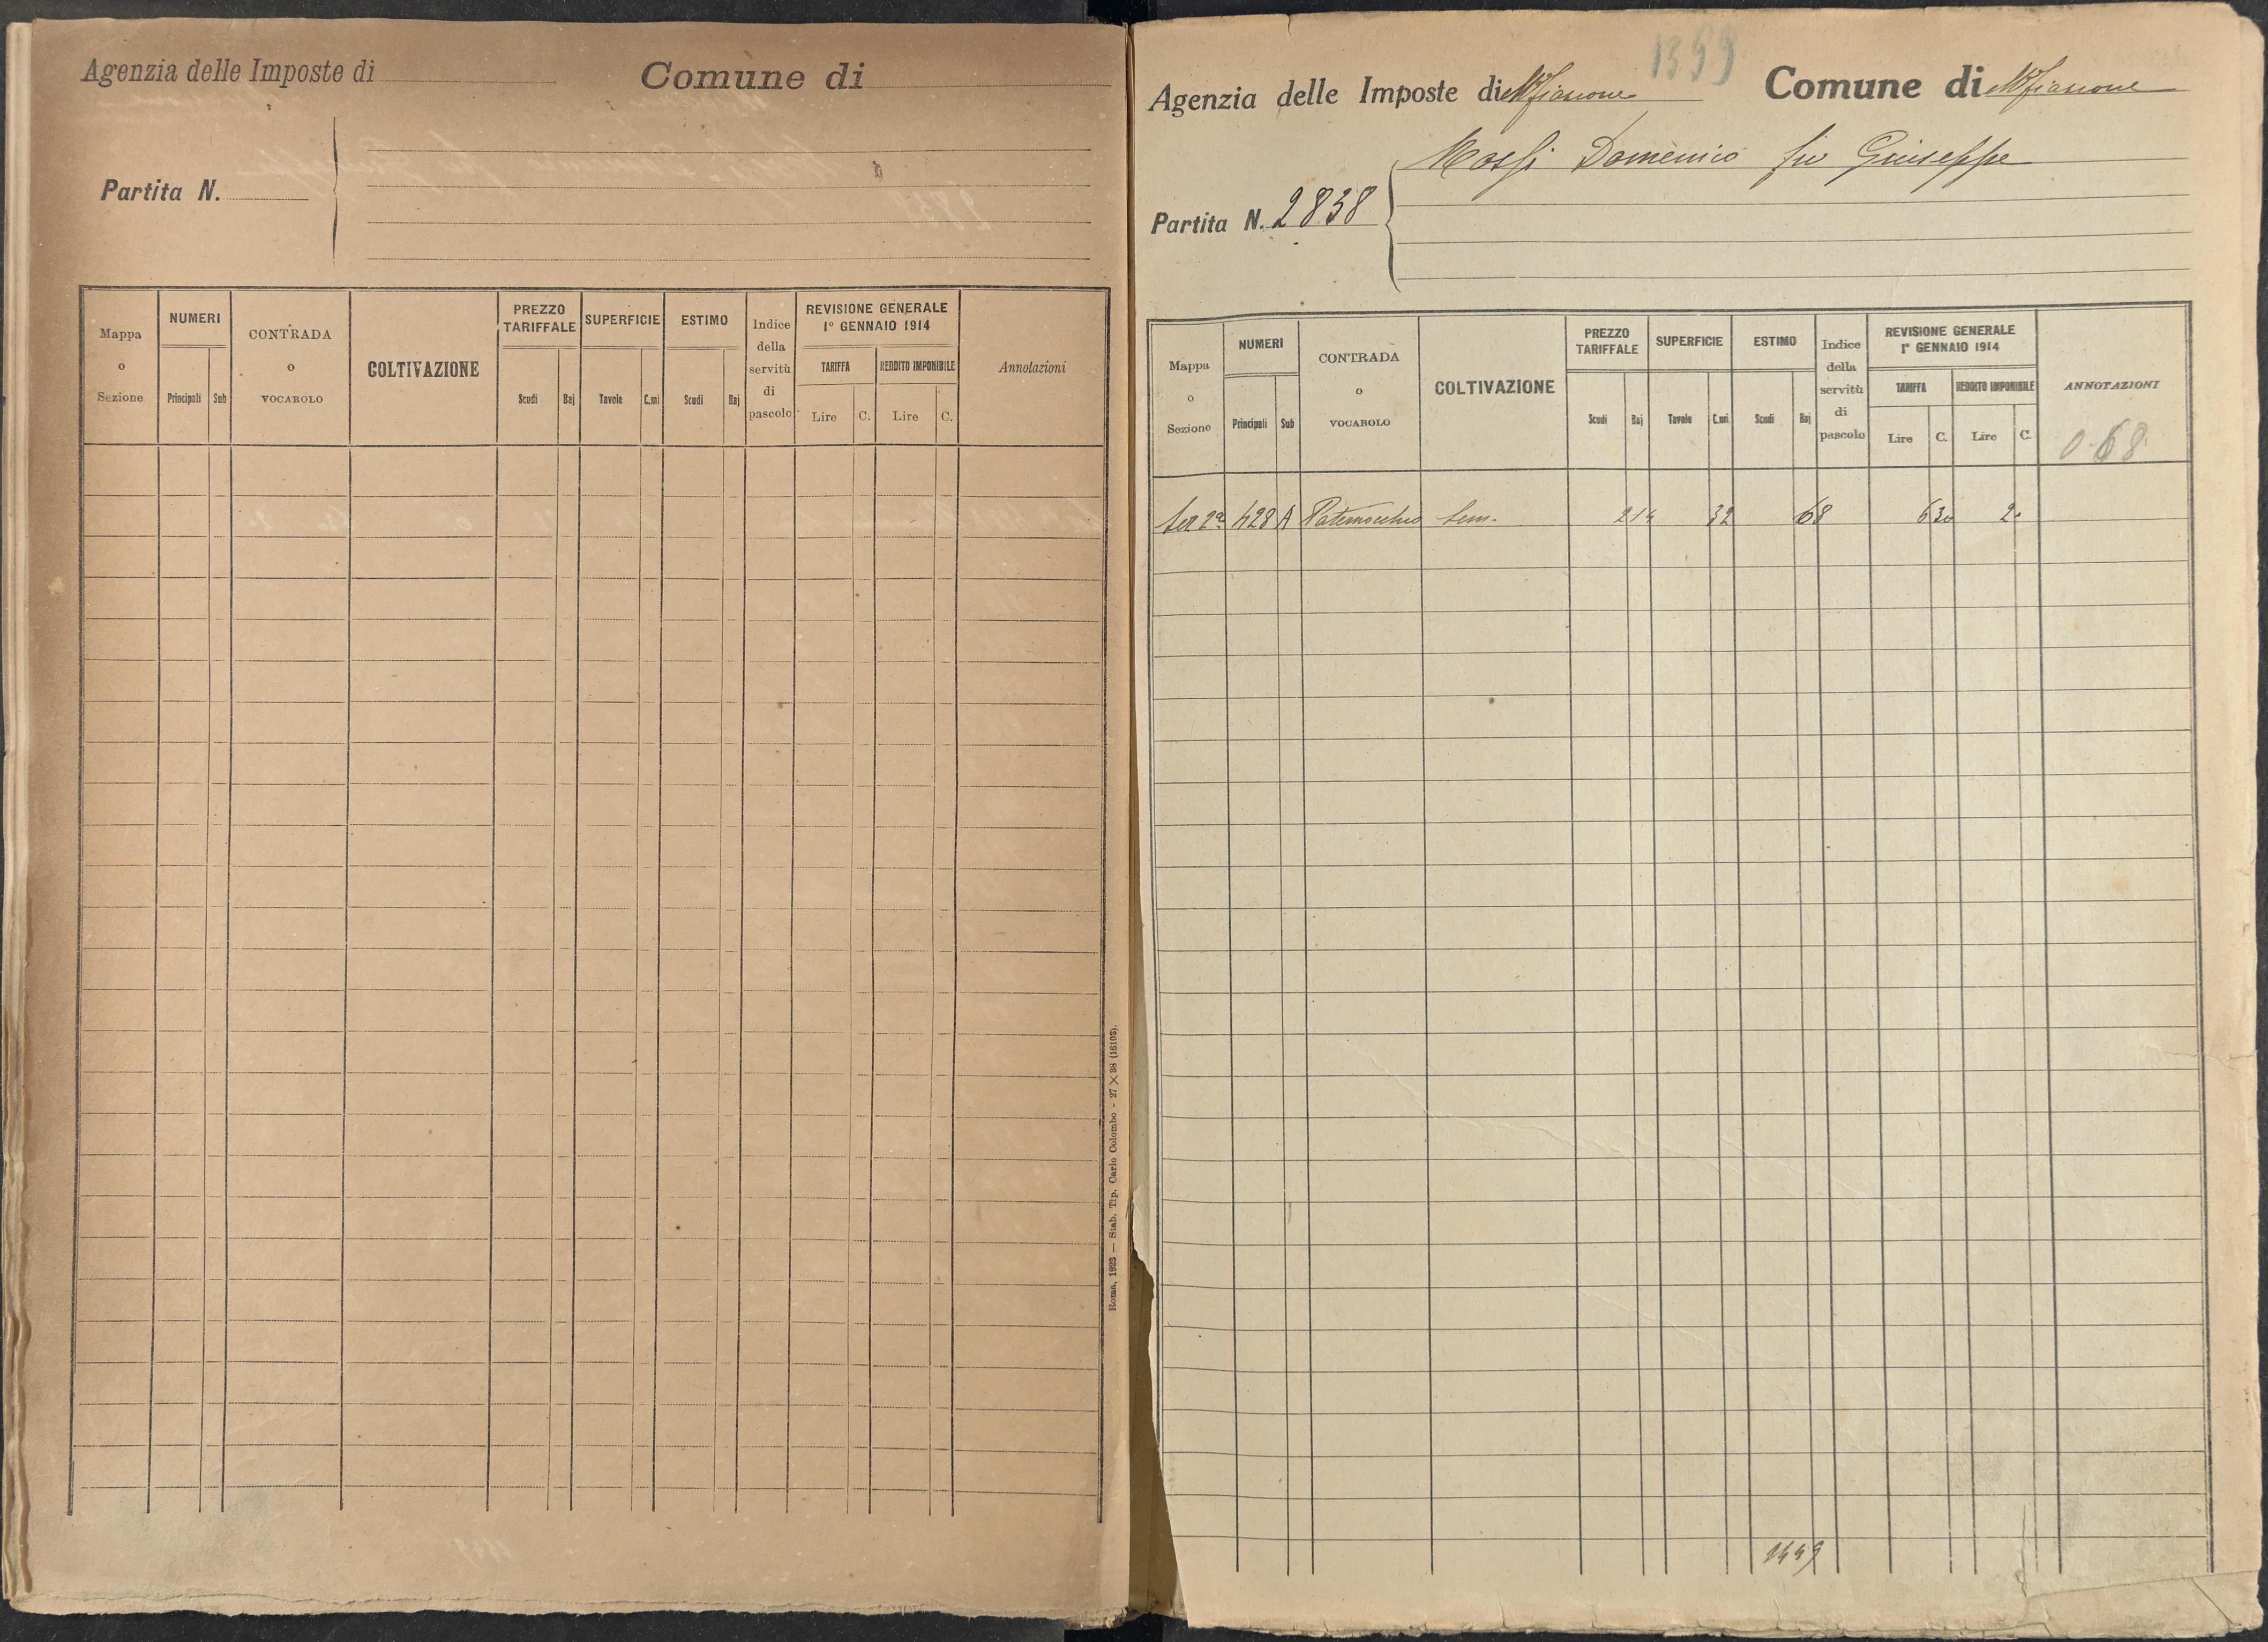 Agenzia delle Imposte di
Comune di
Partita N.
Mappa o Sezione
NUMERI
Principali
Sub
CONTRADA o VOCABOLO
COLTIVAZIONE
PREZZO TARIFFALE
Scudi
Baj
SUPERFICIE
Tavole
C.mi
ESTIMO
Scudi
Baj
Indice della servitù di pascolo
REVISIONE GENERALE
1° GENNAIO 1914
TARIFFA
Lire
C.
REDDITO IMPONIBILE
Lire
C.
Annotazioni
Roma, 1923 — Stab. Tip. Carlo Colombo - 27 × 38 (16103).
Agenzia delle Imposte di Mfiascone
Comune di Mfiascone
Domenico fu Giuseppe
Partita N. 2838
Mappa o Sezione
NUMERI
Principali
Sub
CONTRADA o VOCABOLO
COLTIVAZIONE
PREZZO TARIFFALE
Scudi
Baj
SUPERFICIE
Tavole
C.mi
ESTIMO
Scudi
Baj
Indice della servitù di pascolo
REVISIONE GENERALE
1° GENNAIO 1914
TARIFFA
Lire
C.
REDDITO IMPONIBILE
Lire
C.
ANNOTAZIONI
0.68
Sez 2ª 428 A Paternocchio Sem. 2 14 32 68 6 30 2